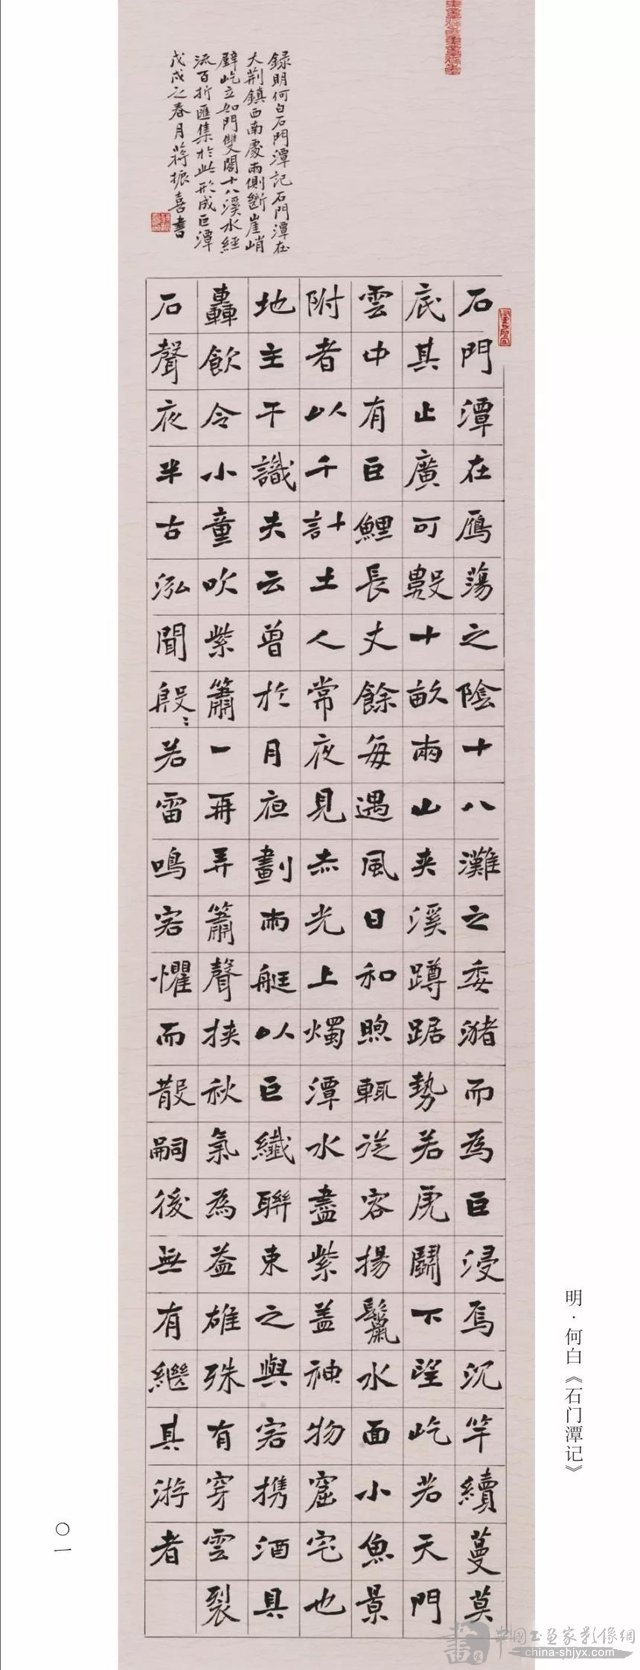 録明何白石門潭記石門潭在
大荆鎮西南慶雨側斷崖峭
壁屹立如門雙闕十八溪水經
流百折匯集於此形成巨潭
戊戌之春月蒋振喜書
石門潭在鴈蕩之陰十八灘之委潴而為巨浸焉沉竿續蔓莫
底其止廣可數十畝兩山夾溪蹲踞勢若虎鬪下望屹若天門
雲中有巨鯉長丈餘每遇風日和煦輒從容揚鬣水面小魚景
附者以千計土人常夜見赤光上燭潭水盡紫盖神物窟宅也
地主干識夫云曾於月夜劃兩艇以巨纖聯束之與客携酒具
轟飲令小童吹紫簫一再弄簫聲挟秋氣為益雄殊有穿雲裂
石聲夜半古泓聞殷〻若雷鳴客懼而散嗣後無有繼其游者
明·何白《石门潭记》
〇一
中國书画家影像網
china-shjyx.com